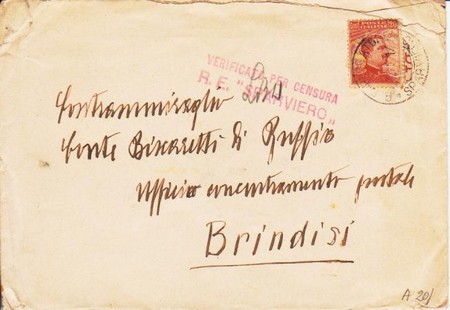 POSTE ITALIANE
VERIFICATO PER CENSURA
R. E. "SPARVIERO"
Contrammiraglio
Conte Biscaretti di Ruffia
Ufficio concentramento postale
Brindisi
A 20/